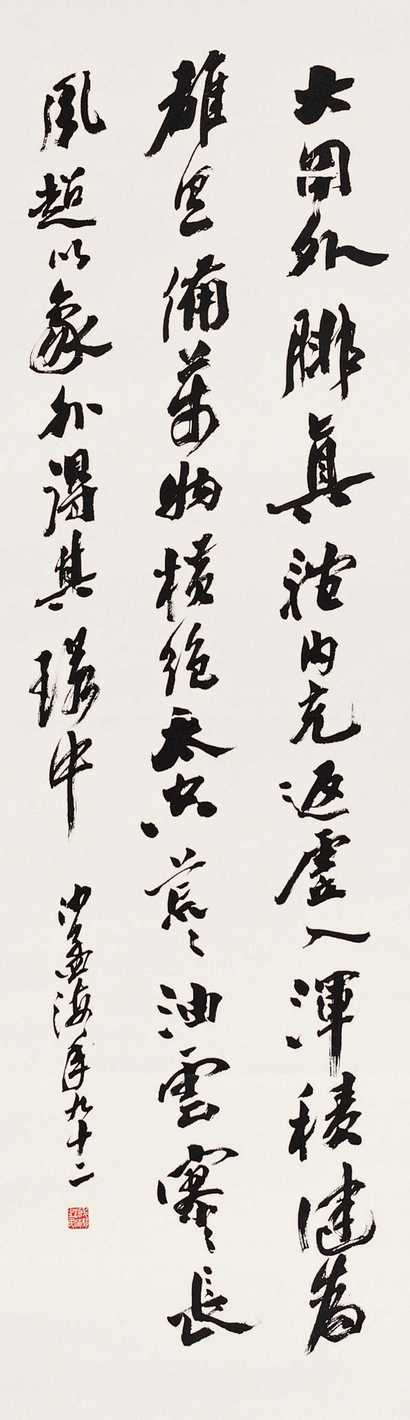 大用外腓真體内充返虛入渾積健為
雄具備萬物橫絕太空荒荒油雲寥寥長
風超以象外得其環中
沙孟海年九十二